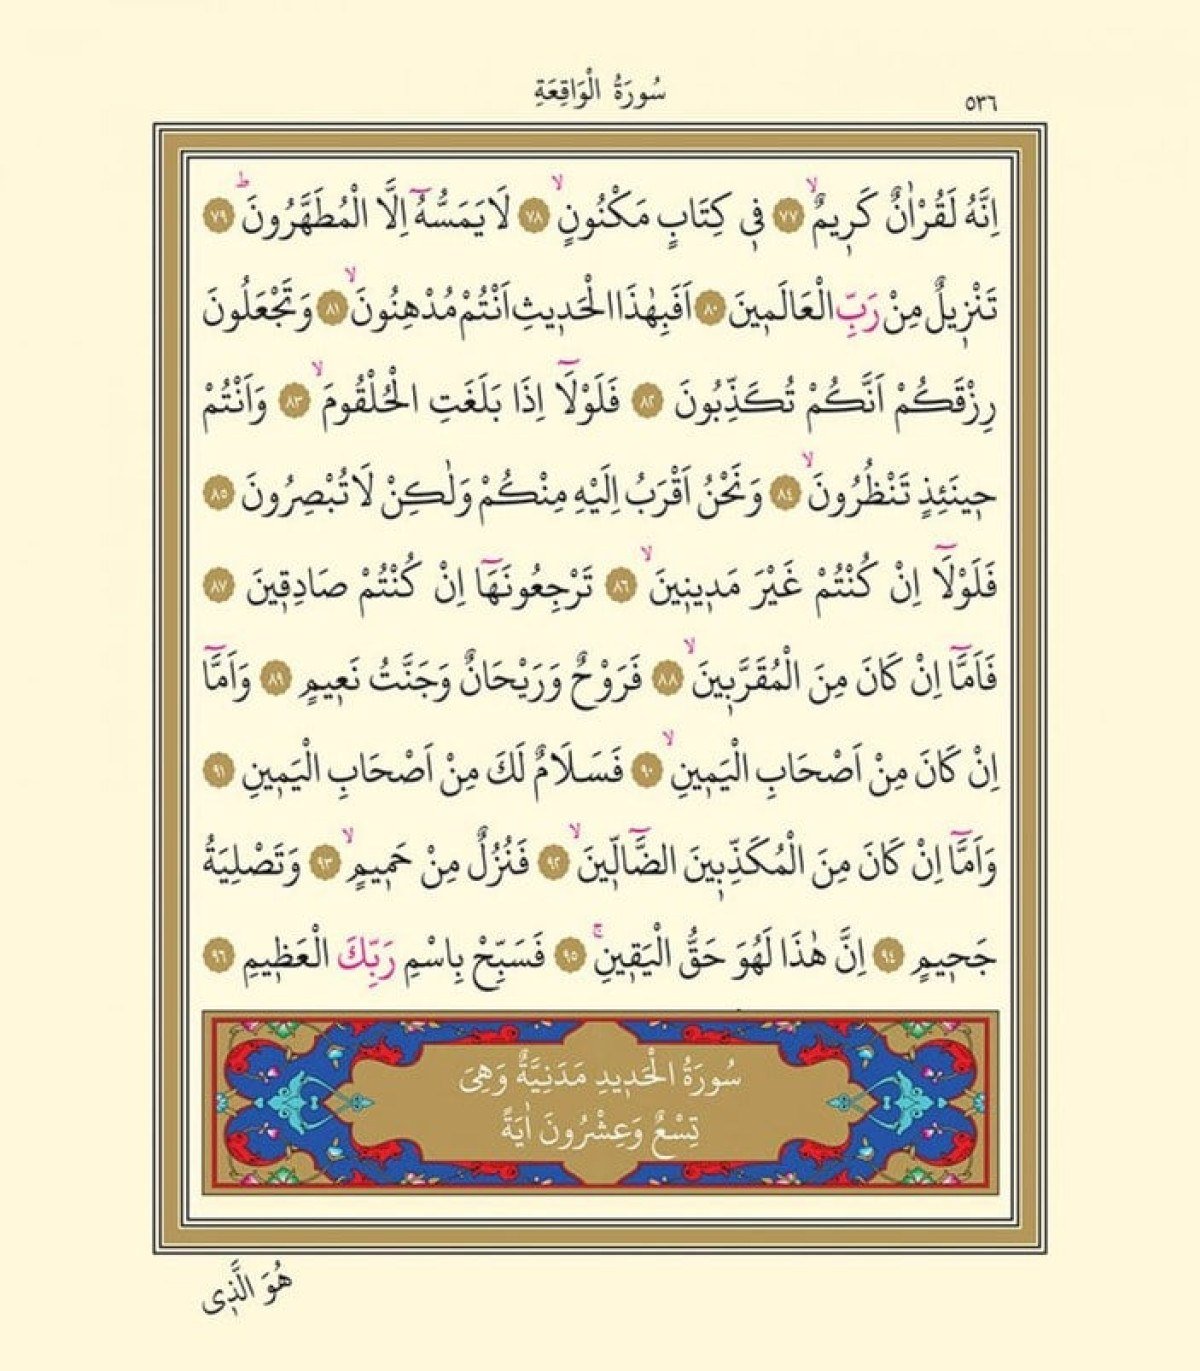 سُورَةُ الْوَاقِعَةِ
٥٣٦
اِنَّهُ لَقُرْاٰنٌ كَرٖيمٌۙ ﴿٧٧﴾ فٖى كِتَابٍ مَكْنُونٍۙ ﴿٧٨﴾ لَا يَمَسُّهُٓ اِلَّا الْمُطَهَّرُونَۜ ﴿٧٩﴾
تَنْزٖيلٌ مِنْ رَبِّ الْعَالَمٖينَ ﴿٨٠﴾ اَفَبِهٰذَا الْحَدٖيثِ اَنْتُمْ مُدْهِنُونَۙ ﴿٨١﴾ وَتَجْعَلُونَ
رِزْقَكُمْ اَنَّكُمْ تُكَذِّبُونَ ﴿٨٢﴾ فَلَوْلَٓا اِذَا بَلَغَتِ الْحُلْقُومَۙ ﴿٨٣﴾ وَاَنْتُمْ
حٖينَئِذٍ تَنْظُرُونَۙ ﴿٨٤﴾ وَنَحْنُ اَقْرَبُ اِلَيْهِ مِنْكُمْ وَلٰكِنْ لَا تُبْصِرُونَ ﴿٨٥﴾
فَلَوْلَٓا اِنْ كُنْتُمْ غَيْرَ مَدٖينٖينَۙ ﴿٨٦﴾ تَرْجِعُونَهَٓا اِنْ كُنْتُمْ صَادِقٖينَ ﴿٨٧﴾
فَاَمَّٓا اِنْ كَانَ مِنَ الْمُقَرَّبٖينَۙ ﴿٨٨﴾ فَرَوْحٌ وَرَيْحَانٌ وَجَنَّتُ نَعٖيمٍ ﴿٨٩﴾ وَاَمَّٓا
اِنْ كَانَ مِنْ اَصْحَابِ الْيَمٖينِۙ ﴿٩٠﴾ فَسَلَامٌ لَكَ مِنْ اَصْحَابِ الْيَمٖينِ ﴿٩١﴾
وَاَمَّٓا اِنْ كَانَ مِنَ الْمُكَذِّبٖينَ الضَّٓالّٖينَۙ ﴿٩٢﴾ فَنُزُلٌ مِنْ حَمٖيمٍۙ ﴿٩٣﴾ وَتَصْلِيَةُ
جَحٖيمٍ ﴿٩٤﴾ اِنَّ هٰذَا لَهُوَ حَقُّ الْيَقٖينِۚ ﴿٩٥﴾ فَسَبِّحْ بِاسْمِ رَبِّكَ الْعَظٖيمِ ﴿٩٦﴾
سُورَةُ الْحَدٖيدِ مَدَنِيَّةٌ وَهِىَ
تِسْعٌ وَعِشْرُونَ اٰيَةً
هُوَ الَّذٖى